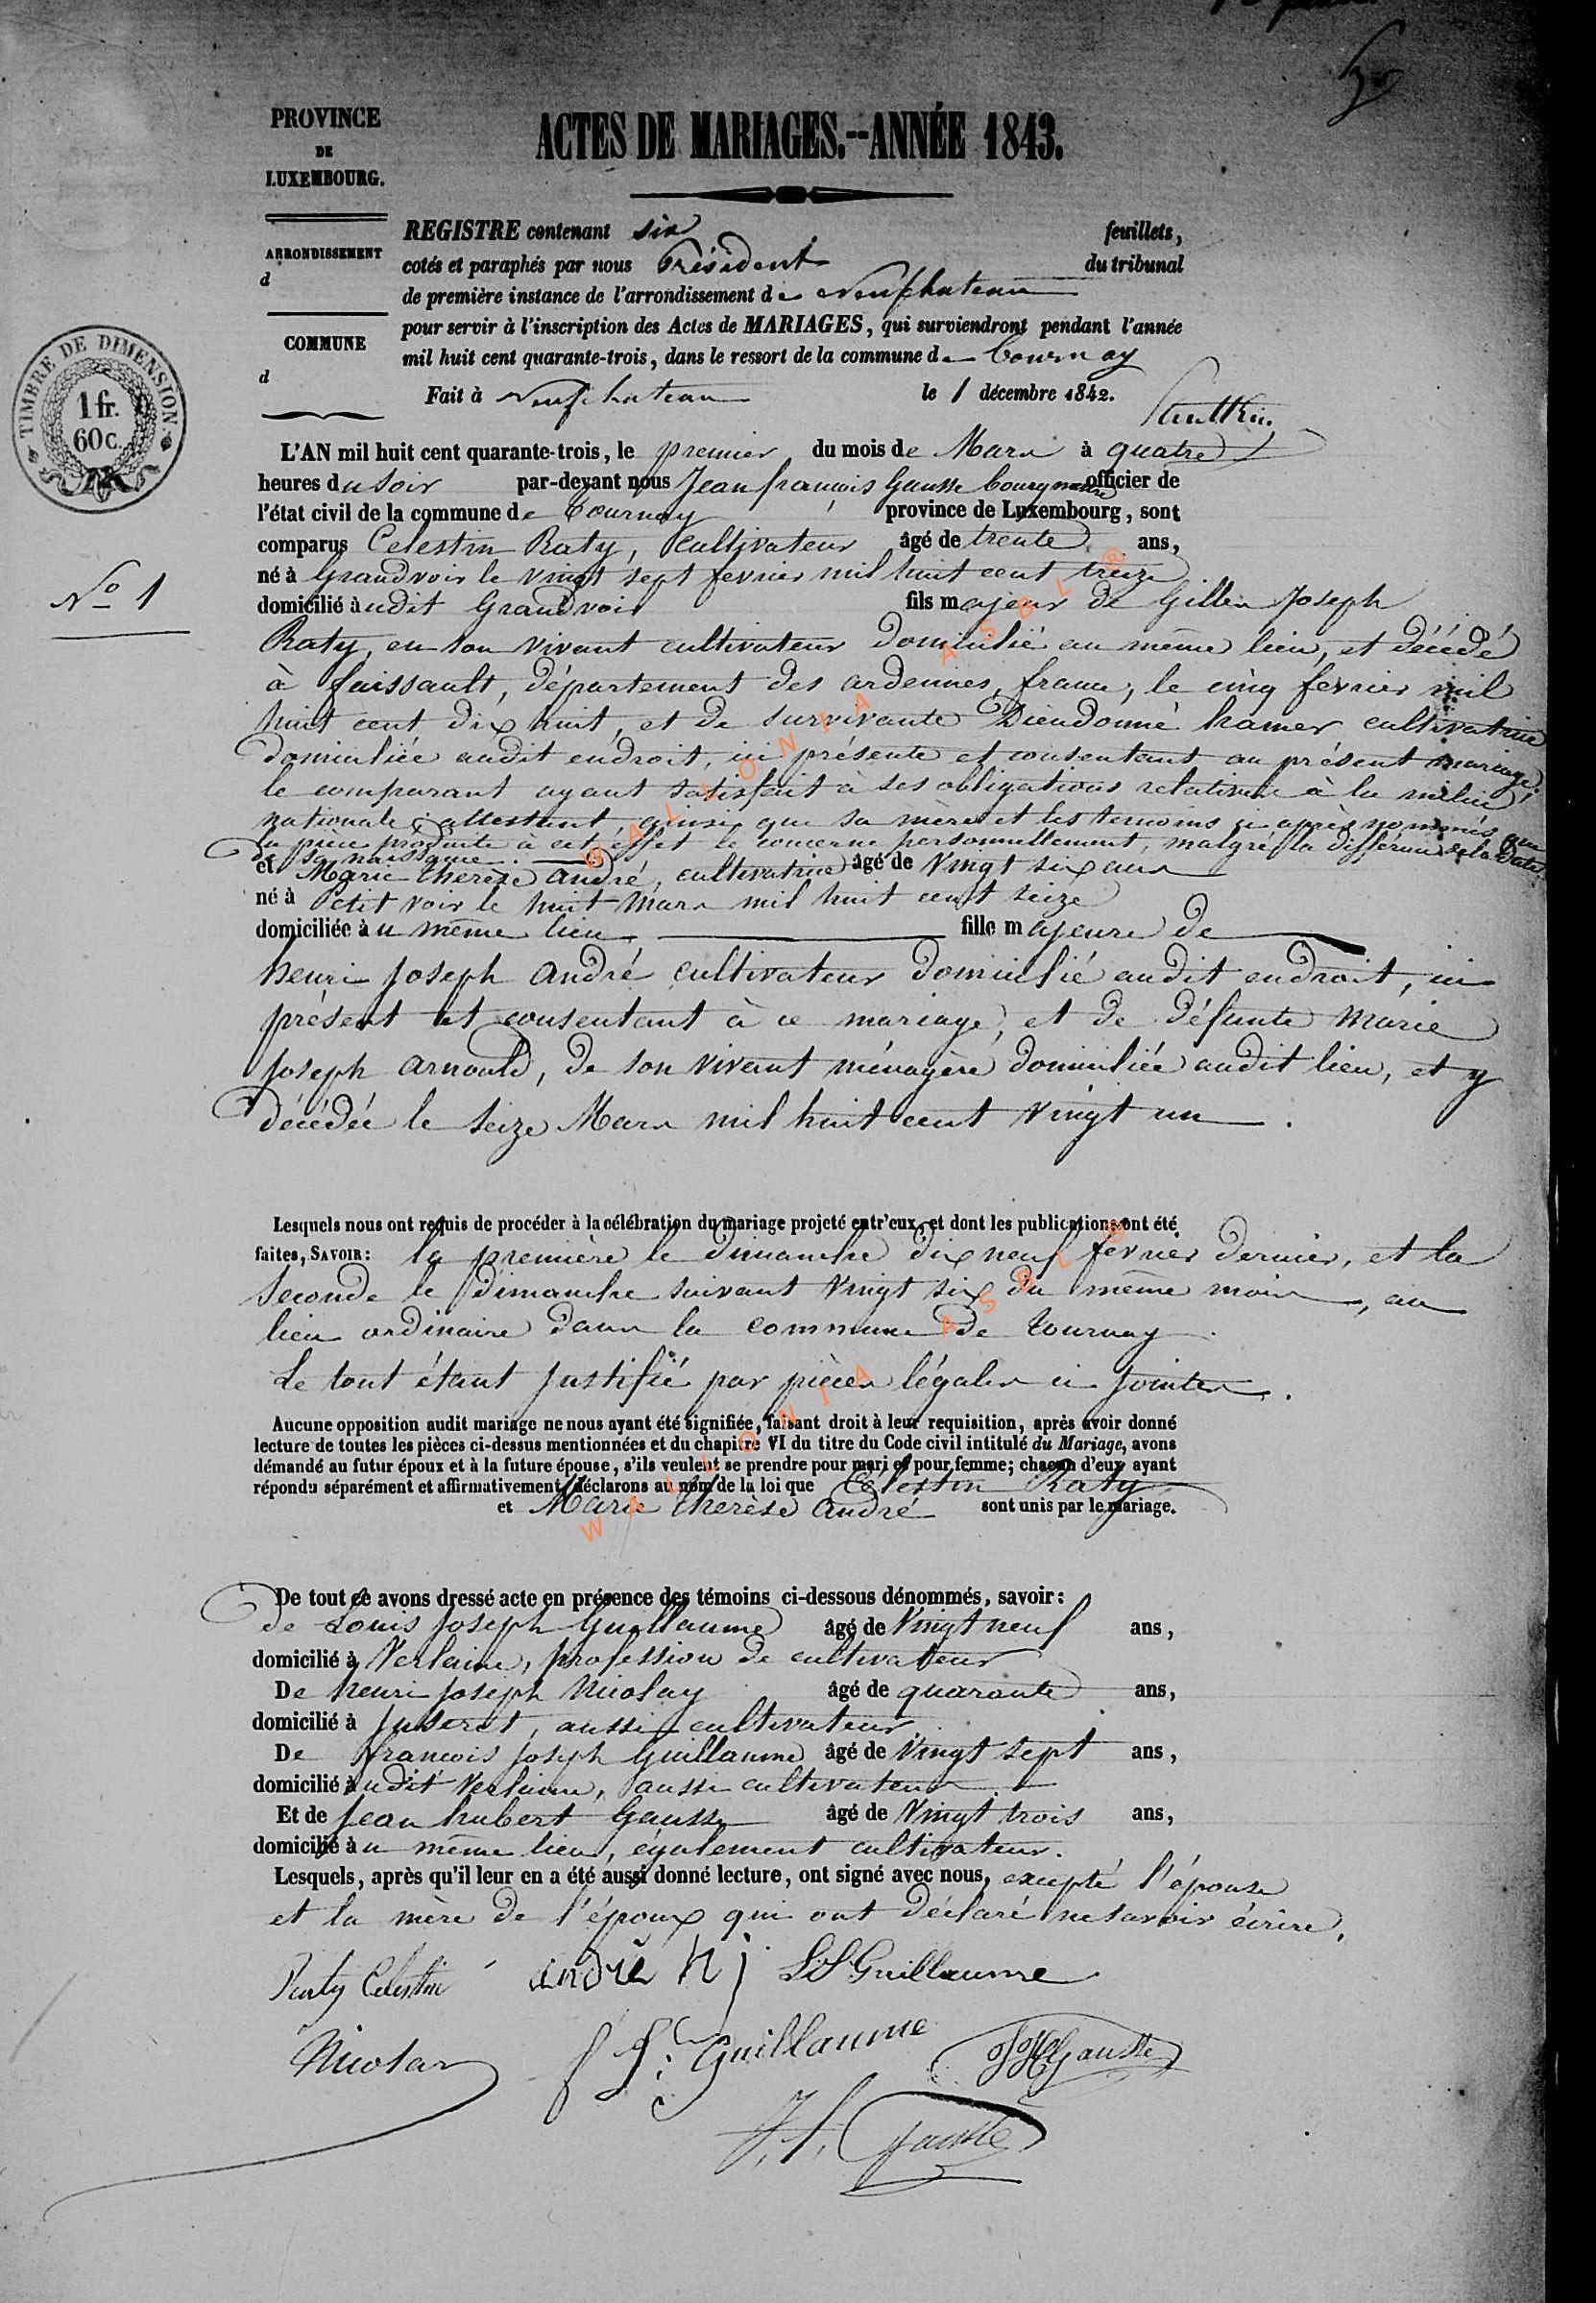 PROVINCE
DE
LUXEMBOURG.
ACTES DE MARIAGES.--ANNÉE 1843.
ARRONDISSEMENT
d
COMMUNE
d
REGISTRE contenant six feuillets,
cotés et paraphés par nous Président du tribunal
de première instance de l'arrondissement de Neufchateau
pour servir à l'inscription des Actes de MARIAGES, qui surviendront pendant l'année
mil huit cent quarante-trois, dans le ressort de la commune de Tournay
Fait à Neufchateau le 1 décembre 1842.
TIMBRE DE DIMENSION.
1 fr.
60 c.
L'AN mil huit cent quarante-trois, le premier du mois de Mars à quatre
heures du soir par-devant nous Jean françois Gausse bourgmestre officier de
l'état civil de la commune de Tournay province de Luxembourg, sont
comparus Celestin Raty, cultivateur âgé de trente ans,
No 1
né à Grandvoir le vingt sept fevrier mil huit cent treize
domicilié audit Grandvoir fils majeur de Gilles Joseph
Raty, en son vivant cultivateur domicilié au même lieu, et décédé
à faissault, département des ardennes, france, le cinq fevrier mil
huit cent dix huit, et de survivante Dieudonné hamer cultivatrice
domiciliée audit endroit, ici présente et consentant au présent mariage,
le comparant ayant satisfait à ses obligations relatives à la milice
nationale, attestant, ainsi que sa mère et les temoins ci après nommés que
la pièce produite à cet effet le concerne personnellement, malgré la différence de la date
de sa naissance.
et Marie therèse andré, cultivatrice âgé de vingt six ans
né à Petit voir le huit Mars mil huit cent seize
domiciliée au même lieu, fille majeure de
henri Joseph andré cultivateur domicilié audit endroit, ici
présent et consentant à ce mariage, et de défunte Marie
Joseph arnould, de son vivant ménagère domiciliée audit lieu, et y
décédée le seize Mars mil huit cent vingt un.
Lesquels nous ont requis de procéder à la célébration du mariage projeté entr'eux, et dont les publications ont été
faites, SAVOIR: la première le dimanche dix neuf fevrier dernier, et la
seconde le dimanche suivant vingt six du même mois, au
lieu ordinaire dans la commune de Tournay.
Le tout étant justifié par pièces légales ci jointes.
Aucune opposition audit mariage ne nous ayant été signifiée, faisant droit à leur requisition, après avoir donné
lecture de toutes les pièces ci-dessus mentionnées et du chapitre VI du titre du Code civil intitulé du Mariage, avons
démandé au futur époux et à la future épouse, s'ils veulent se prendre pour mari et pour femme; chacun d'eux ayant
répondu séparément et affirmativement, déclarons au nom de la loi que Celestin Raty
et Marie therèse andré sont unis par le mariage.
De tout ce avons dressé acte en présence des témoins ci-dessous dénommés, savoir:
de Louis Joseph Guillaume âgé de vingt neuf ans,
domicilié à Verlaine, profession de cultivateur
De henri Joseph Nicolay âgé de quarante ans,
domicilié à Juseret, aussi cultivateur
De francois Joseph Guillaume âgé de vingt sept ans,
domicilié audit Verlaine, aussi cultivateur
Et de Jean hubert Gausse âgé de vingt trois ans,
domicilié au même lieu, également cultivateur.
Lesquels, après qu'il leur en a été aussi donné lecture, ont signé avec nous, excepté l'épouse
et la mère de l'époux qui ont déclaré ne savoir écrire.
Raty Celestin andré h j LJ Guillaume
Nicolay f J: Guillaume JH Gausse
J. f. Gausse
WALLONIA ASBL ®
WALLONIA ASBL ®